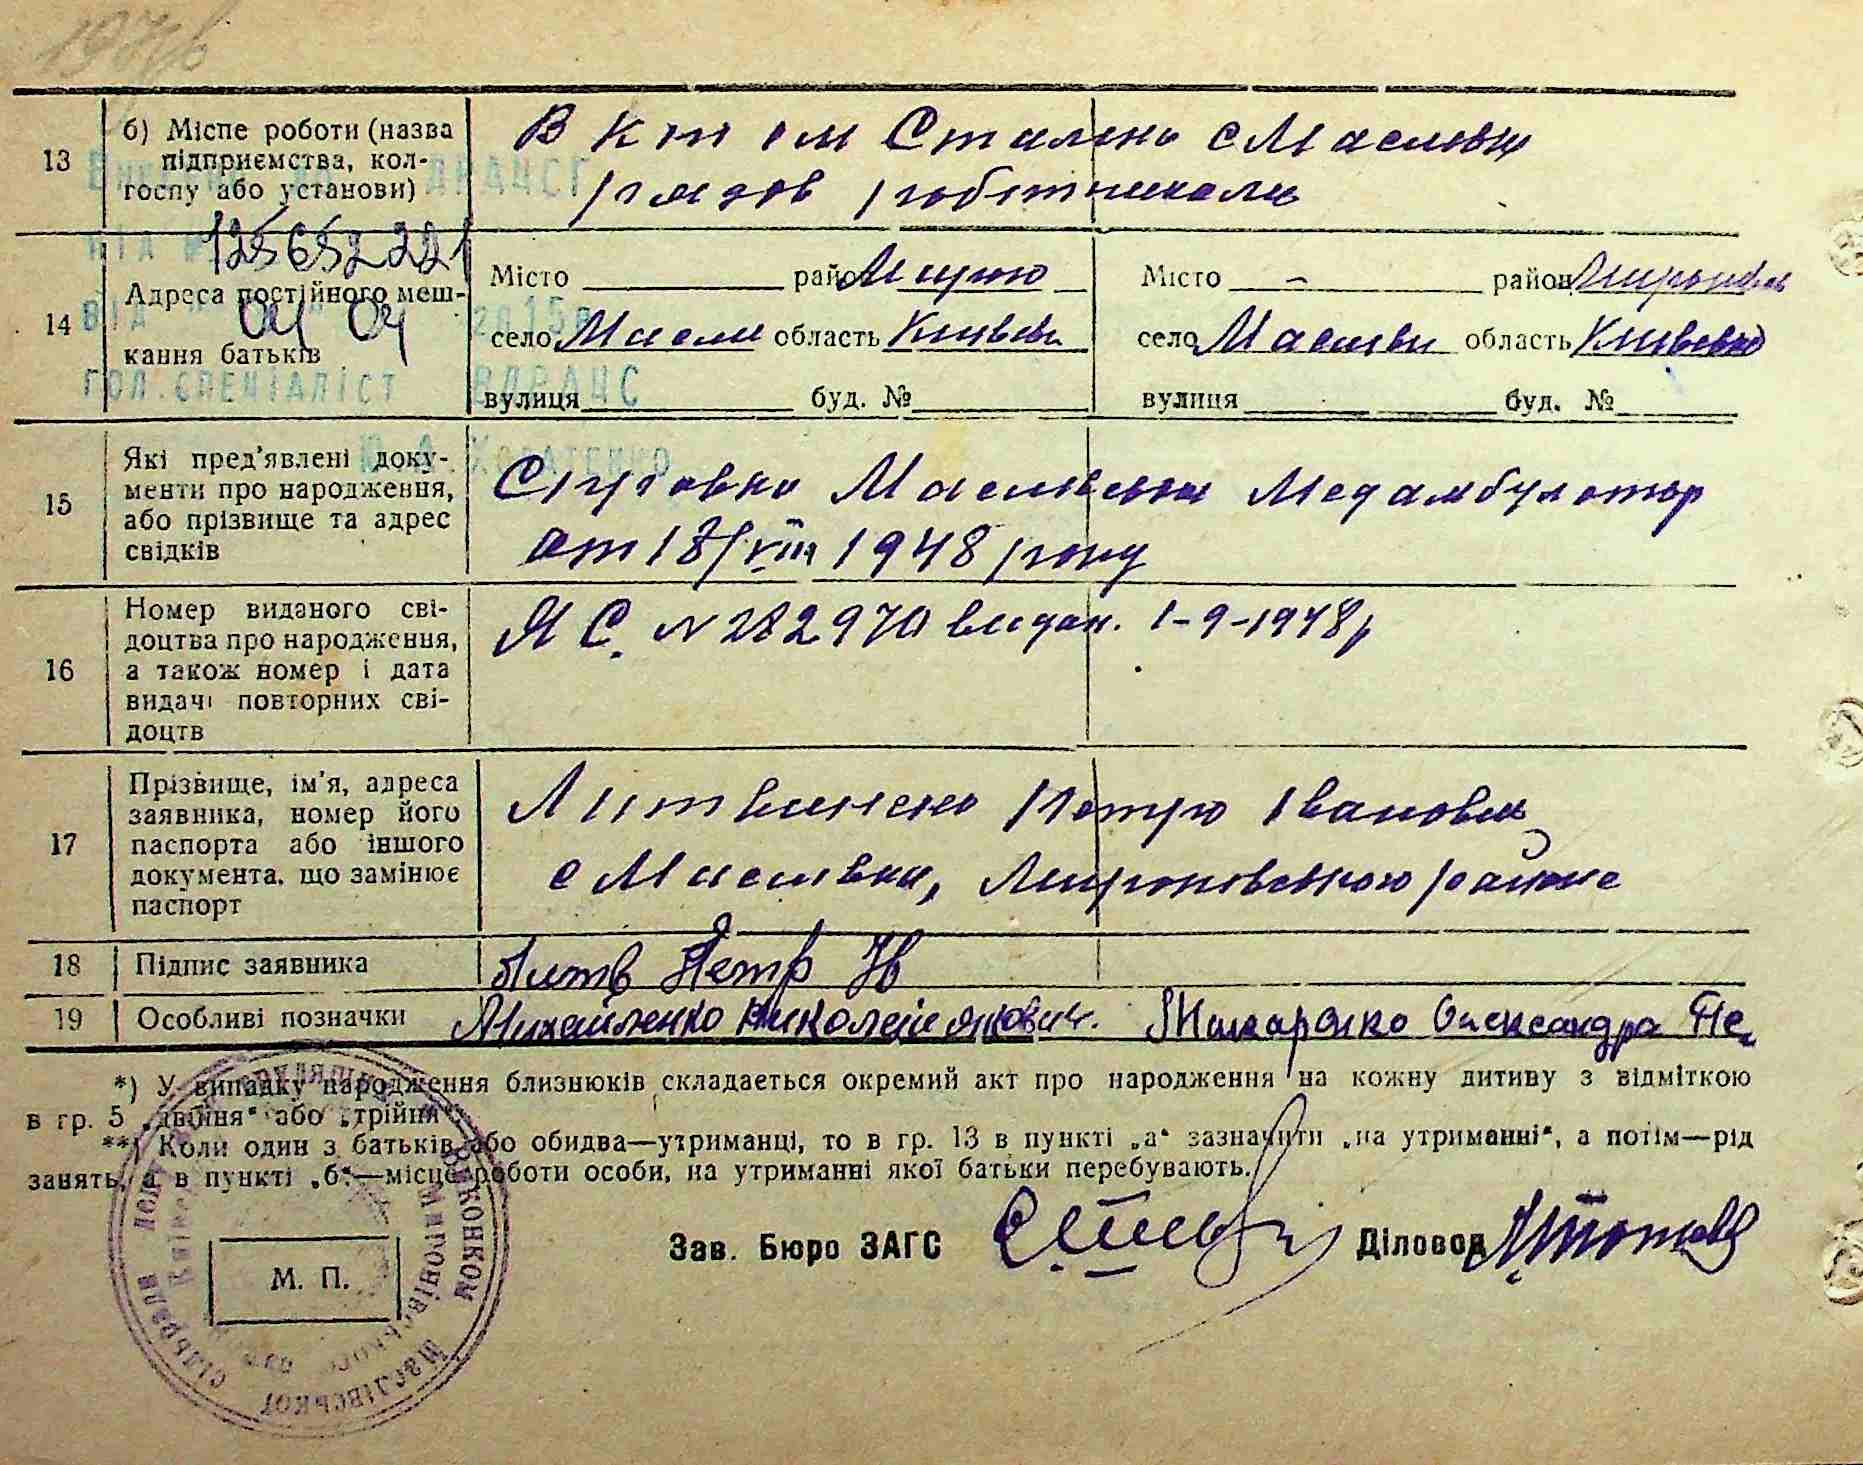 13
б) Місце роботи (назва
підприємства, кол-
госпу або установи)
В к-т ім Сталіна с Маслівци
рядов робітниками
125652221
14
Адреса постійного меш-
04 04
кання батьків
Місто район Мирно
село Масли область Київськ
вулиця буд. №
Місто – район Миронівськ
село Маслівки область Київська
вулиця буд. №
2015р
гол.спеціаліст ВДРАЦС
15
Які пред'явлені доку-
менти про народження,
або прізвище та адрес
свідків
Справка Маслівська Медамбулатор
от 18/VIII 1948 року
16
Номер виданого сві-
доцтва про народження,
а також номер і дата
видачі повторних сві-
доцтв
ЯС. N 282970 видан. 1-9-1948р
17
Прізвище, ім'я, адреса
заявника, номер його
паспорта або іншого
документа, що замінює
паспорт
Литвиненко Петро Іванович
с Маслівки, Миронівського района
18
Підпис заявника
Литв Петр Ив
19
Особливі позначки
Михайленко Николай Янкович. Макаренко Олександра Пе
*) У випадку народження близнюків складається окремий акт про народження на кожну дитину з відміткою
в гр. 5 „двійня“ або „трійня“.
**) Коли один з батьків або обидва—утриманці, то в гр. 13 в пункті „а“ зазначити „на утриманні“, а потім—рід
занять, а в пункті „б“—місце роботи особи, на утриманні якої батьки перебувають.
Зав. Бюро ЗАГС
Діловод
М. П.
виконком Маслівської сільради
Миронівського